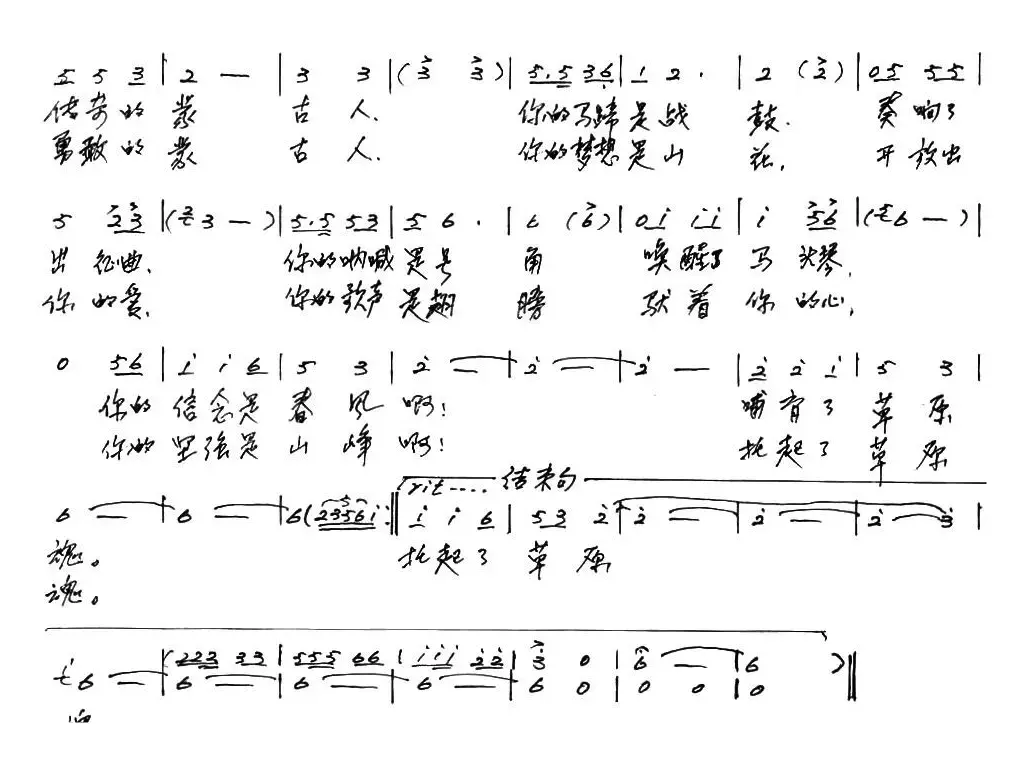 5 5 3 | 2 — | 3 3 | (3 3) | 5.5 36 | 1 2 . | 2 (2) | 05 55 |
传奇的蒙 古人. 你的马蹄是战 鼓. 奏响了
勇敢的蒙 古人. 你的梦想是山 花, 开放出
5 23 | (3 —) | 5.5 53 | 5 6 . | 6 (6) | 0i ii | i 56 | (6 —) |
出征曲. 你的呐喊是号 角 唤醒了马头琴,
你的爱. 你的歌声是翅 膀 驮着你的心,
0 56 | i i 6 | 5 3 | 2 — | 2 — | 2 — | 2 2 i | 5 3 |
你的信念是春风啊! 哺育了草原
你的坚强是山峰啊! 托起了草原
rit.... 结束句
6 — | 6 — | 6 (2356i :‖ i i 6 | 53 2 | 2 — | 2 — | 2 3 |
魂。 托起了草原
魂。
(223 33 | 555 66 | iii 22 | 3 0 | 6 — | 6 )‖
6 — | 6 — | 6 — | 6 — | 6 0 | 0 0 | 0